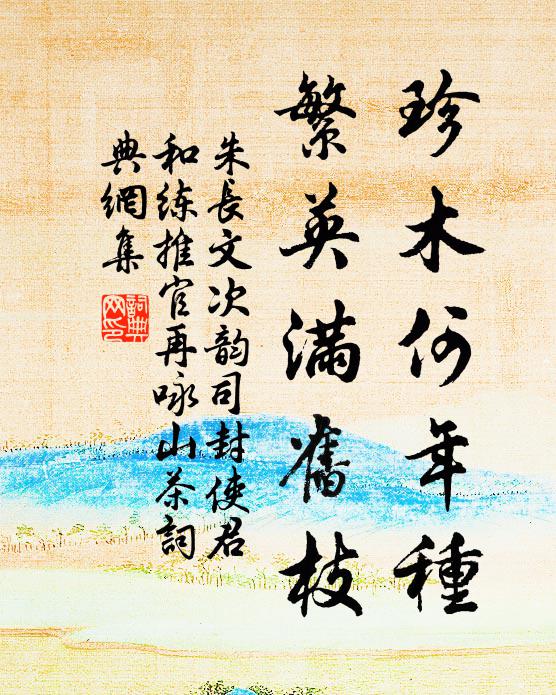 珍木何年種
繁英滿舊枝
朱長文次韵司封使君
和練推官再咏山茶詞
典網集
詞典網印